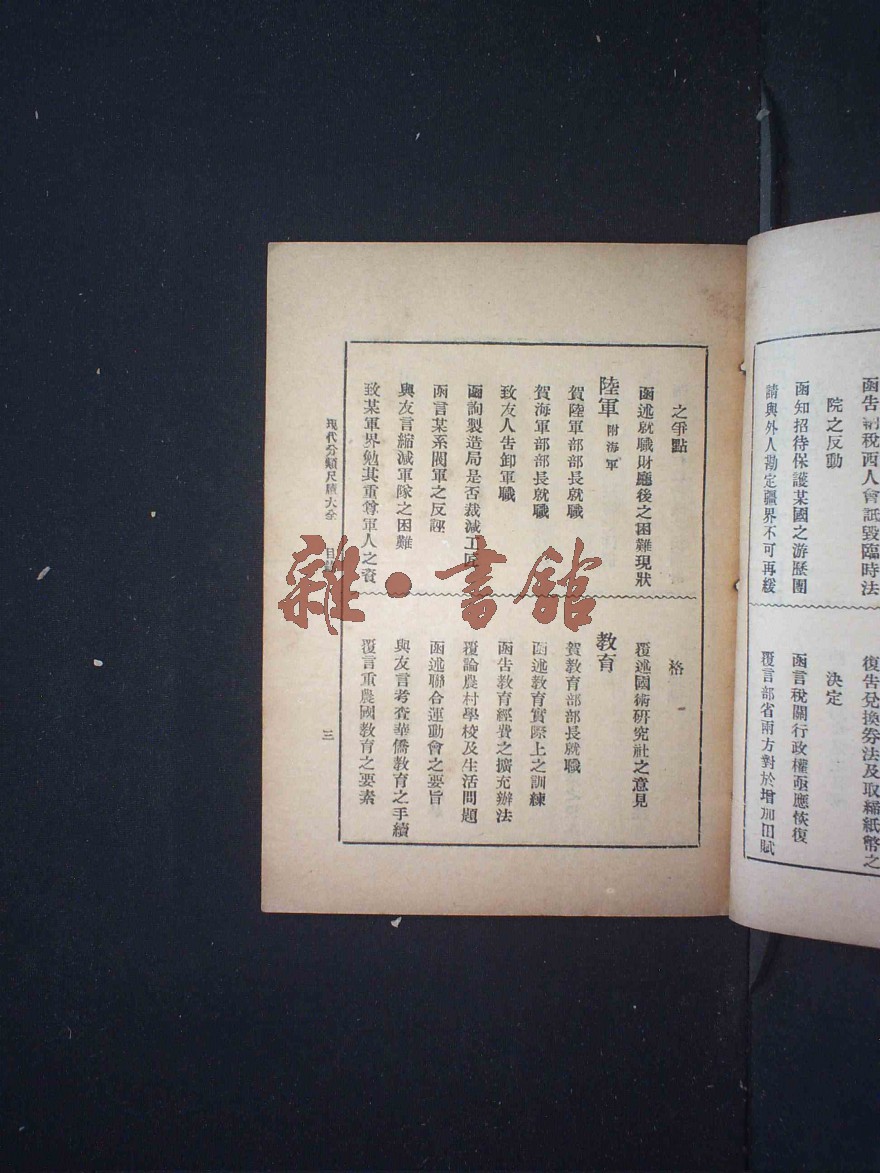 函告納稅西人會詆毀臨時法
院之反動
函知招待保護某國之游歷團
請與外人勘定疆界不可再緩
復告兌換券法及取締紙幣之
決定
函言稅關行政權亟應恢復
覆言部省兩方對於增加田賦
之爭點
函述就職財廳後之困難現狀
陸軍 附海軍
賀陸軍部部長就職
賀海軍部部長就職
致友人告卸軍職
函詢製造局是否裁減工匠
函言某系閥軍之反謬
與友言縮減軍隊之困難
致某軍界勉其重尊軍人之資
格
覆述國術研究社之意見
教育
賀教育部部長就職
函述教育實際上之訓練
函告教育經費之擴充辦法
覆論農村學校及生活問題
函述聯合運動會之要旨
與友言考查華僑教育之手續
覆言重農國教育之要素
現代分類尺牘大全 目
三
雜·書館